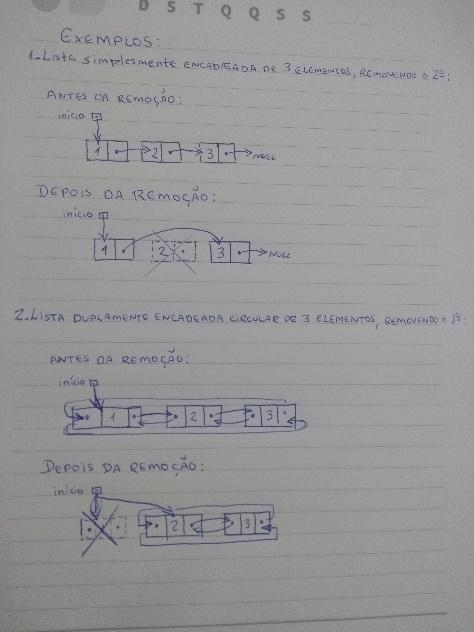 D S T Q Q S S
EXEMPLOS:
1. Lista simplesmente ENCADEADA DE 3 ELEMENTOS, REMOVENDO O 2º:
ANTES DA REMOÇÃO:
início
1 2 3 NULL
DEPOIS DA REMOÇÃO:
início
1 2 3 NULL
2. LISTA DUPLAMENTE ENCADEADA CIRCULAR DE 3 ELEMENTOS, REMOVENDO O 1º:
ANTES DA REMOÇÃO:
início
1 2 3
DEPOIS DA REMOÇÃO:
início
2 3